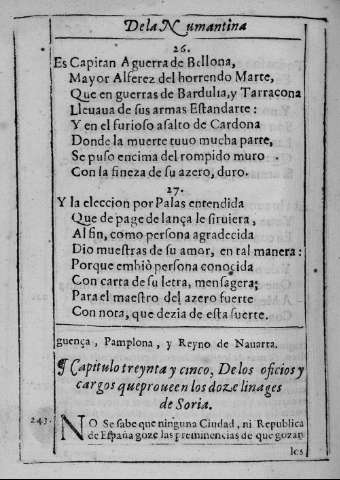 De la Numantina
26.
Es Capitan A guerra de Bellona,
Mayor Alferez del horrendo Marte,
Que en guerras de Bardulia, y Tarracona
Lleuaua de sus armas Estandarte:
Y en el furioso asalto de Cardona
Donde la muerte tuuo mucha parte,
Se puso encima del rompido muro
Con la fineza de su azero, duro.
27.
Y la eleccion por Palas entendida
Que de page de lança le siruiera,
Al fin, como persona agradecida
Dio muestras de su amor, en tal manera:
Porque embiò persona conocida
Con carta de su letra, mensagera;
Para el maestro del azero fuerte
Con nota, que dezia de esta suerte.
guença, Pamplona, y Reyno de Nauarra.
¶ Capitulo treynta y cinco, De los oficios y
cargos que prouee n los doze linages
de Soria.
243. NO Se sabe que ninguna Ciudad, ni Republica
de España goze las preminencias de que gozan
los